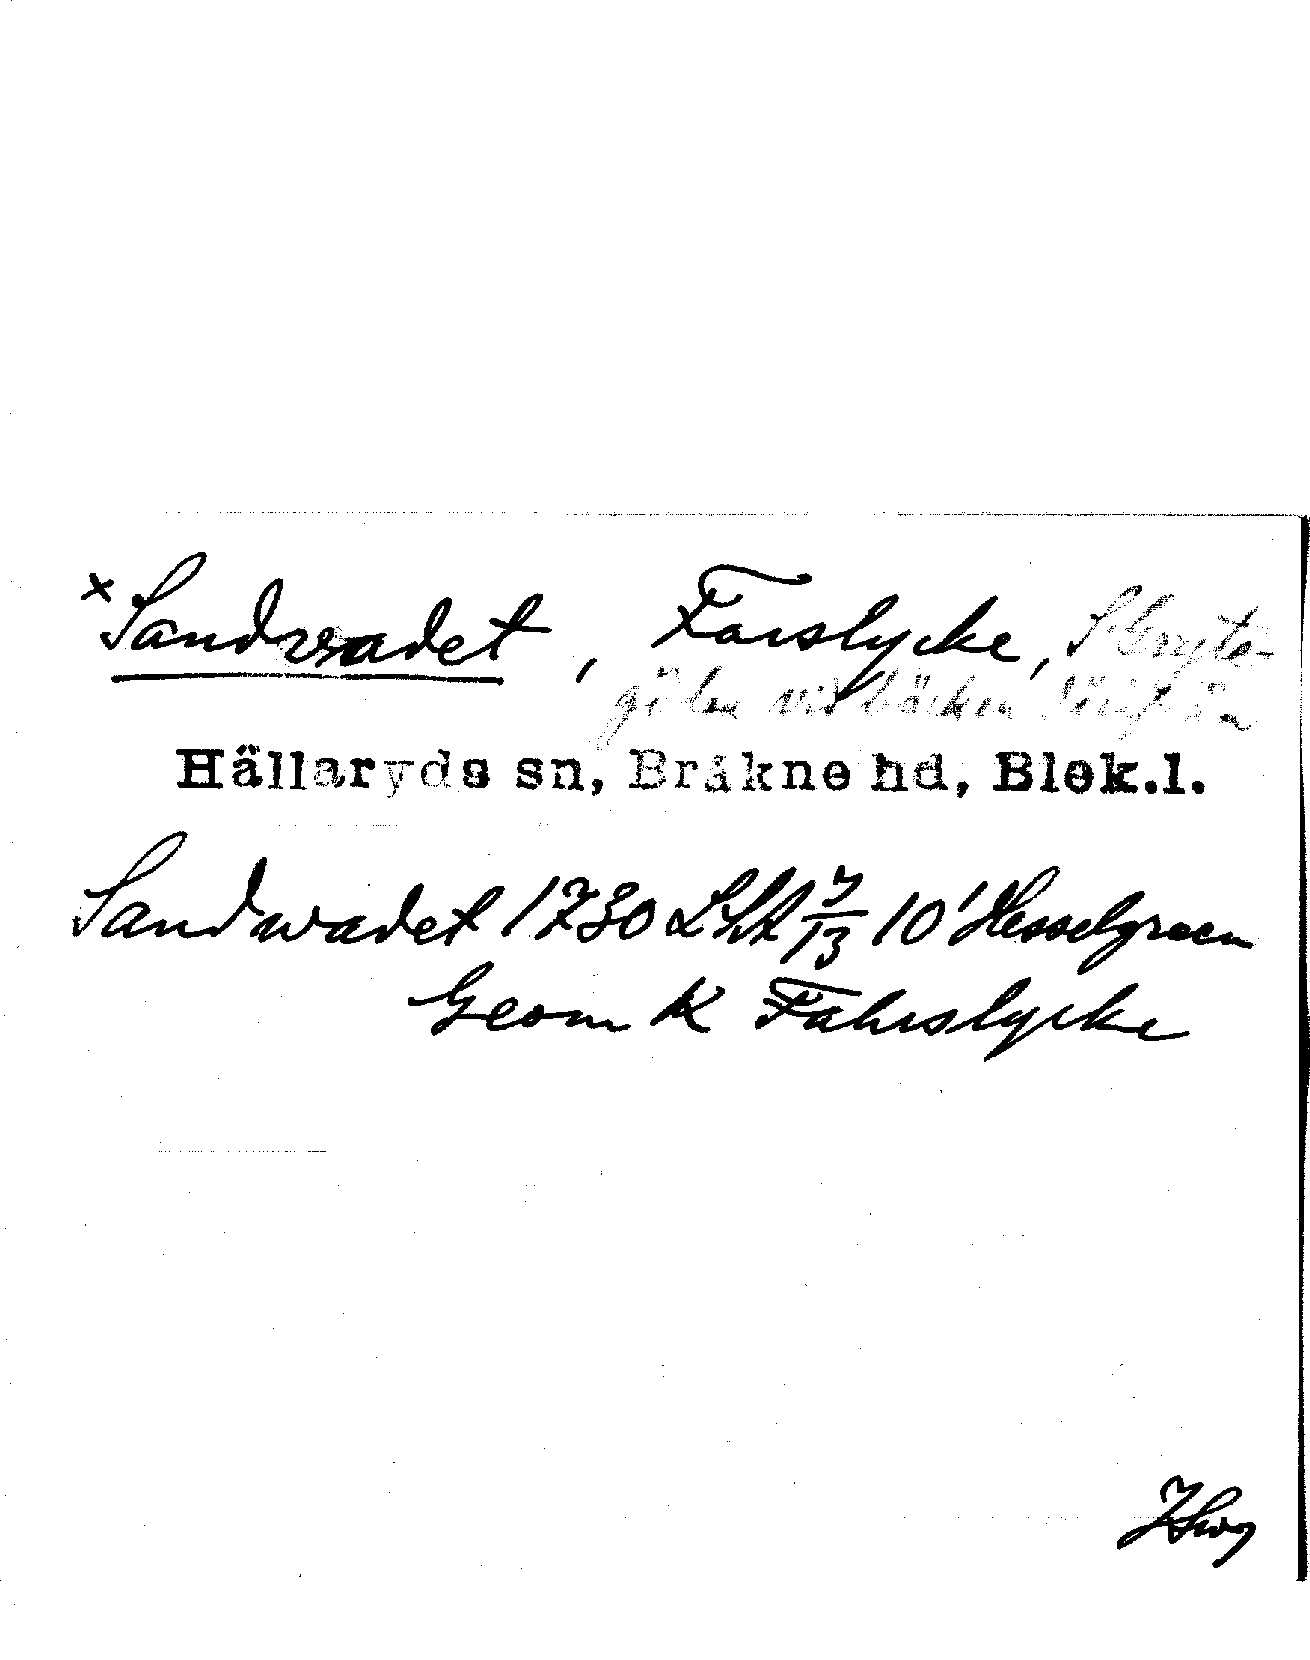 ×Sandvadet, Farslycke, S Gryte-
gölen vid bäcken
Hällaryds sn, Bräkne hd, Blek.l.
Sandwadet 1730 LSA 7/13 10' Hesselgreen
Geom K Fahrslycke